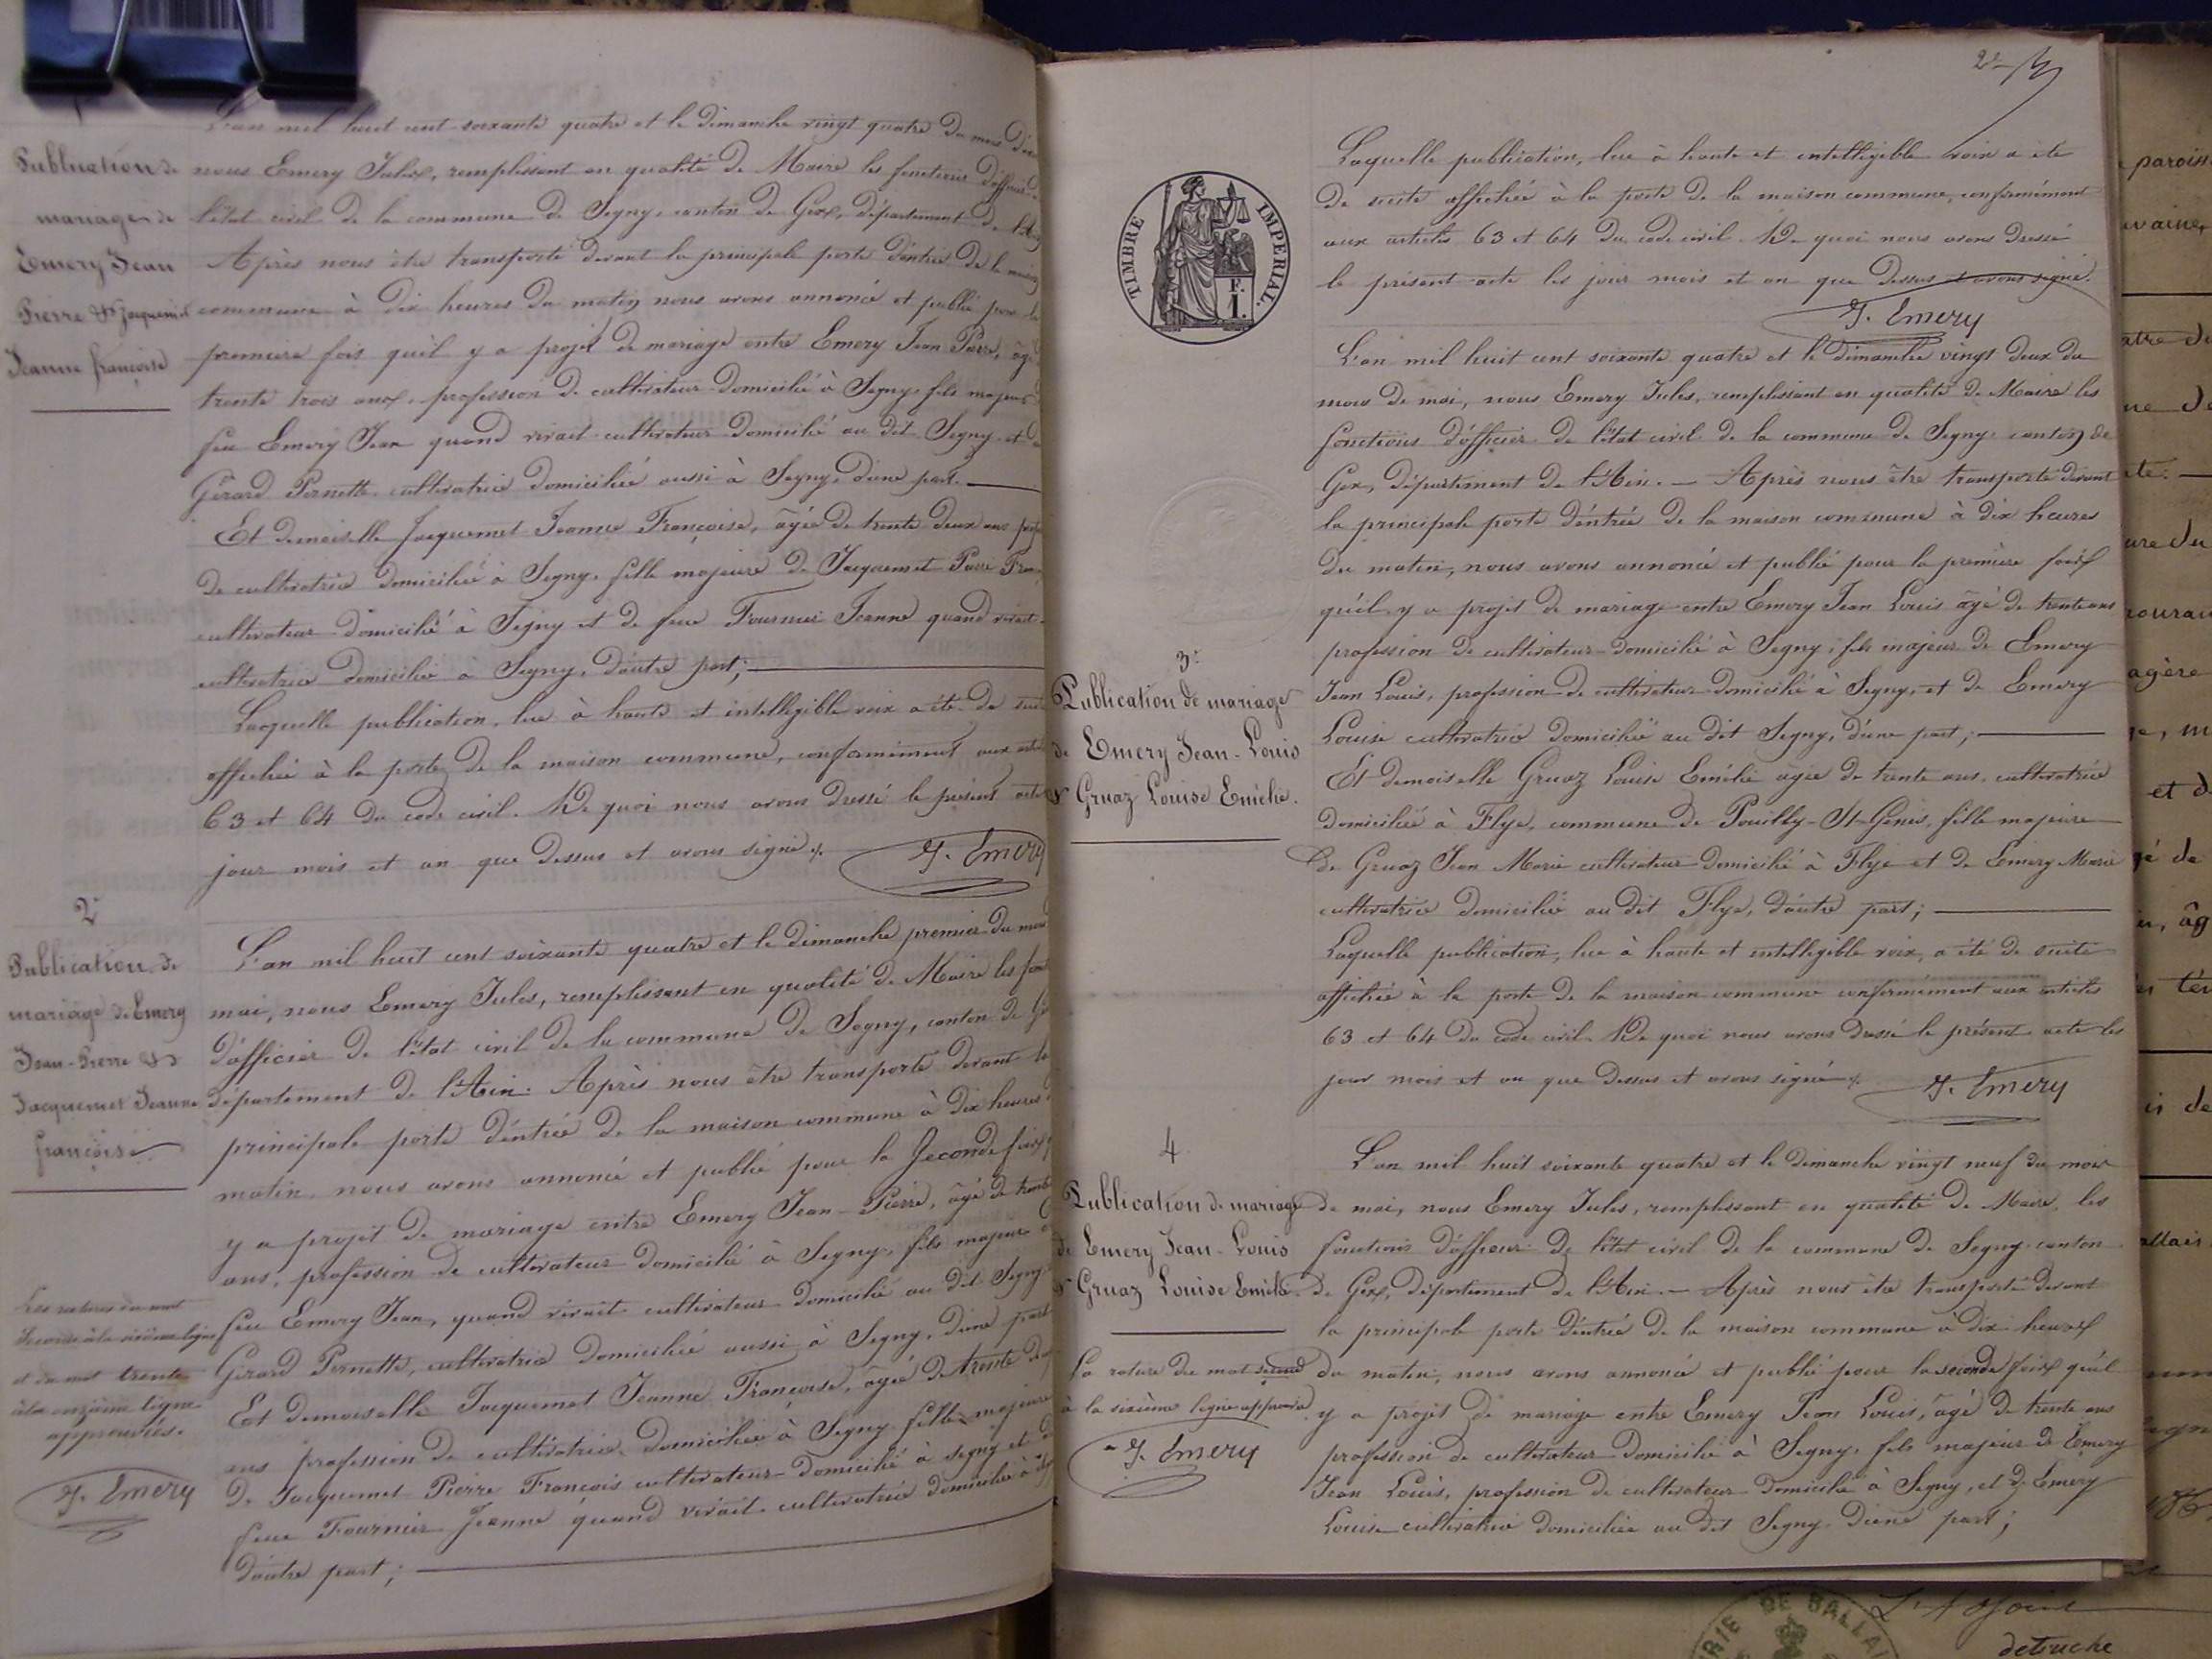 L'an mil huit cent soixante quatre et le dimanche vingt quatre du mois
Publication de
mariage de
Emery Jean
Pierre & Jacquemet
Jeanne françoise
nous Emery Jules, remplissant en qualité de Maire les fonctions d'officier
l'état civil de la commune de Segny, canton de Gex, département de
Après nous être transporté devant la principale porte d'entrée de la
commune à dix heures du matin, nous avons annoncé et publié pour la
première fois qu'il y a projet de mariage entre Emery Jean Pierre, âgé
trente trois ans, profession de cultivateur domicilié à Segny, fils majeur
feu Emery Jean quand vivait cultivateur domicilié au dit Segny et
Gérard Pernette cultivatrice domiciliée aussi à Segny, d'une part.
Et demoiselle Jacquemet Jeanne Françoise, âgée de trente deux ans
de cultivatrice domiciliée à Segny, fille majeure de Jacquemet Pierre
cultivateur domicilié à Segny et de feue Fournier Jeanne quand vivait
cultivatrice domiciliée à Segny, d'autre part;
Laquelle publication, lue à haute et intelligible voix a été de
affichée à la porte de la maison commune, conformément aux
63 et 64 du code civil. De quoi nous avons dressé le présent acte
jour mois et an que dessus et avons signé.
J. Emery
2
Publication de
mariage de Emery
Jean-Pierre &
Jacquemet Jeanne
françoise
L'an mil huit cent soixante quatre et le dimanche premier du
mai, nous Emery Jules, remplissant en qualité de Maire les
d'officier de l'état civil de la commune de Segny, canton de
département de l'Ain. Après nous être transporté devant la
principale porte d'entrée de la maison commune à dix heures
matin nous avons annoncé et publié pour la seconde fois
y a projet de mariage entre Emery Jean-Pierre, âgé de trente
ans, profession de cultivateur domicilié à Segny, fils majeur
feu Emery Jean, quand vivait cultivateur domicilié au dit Segny
Gérard Pernette, cultivatrice domiciliée aussi à Segny, d'une part
Et demoiselle Jacquemet Jeanne Françoise, âgée de trente
ans profession de cultivatrice domiciliée à Segny fille majeure
de Jacquemet Pierre François cultivateur domicilié à Segny et
feue Fournier Jeanne quand vivait cultivatrice domiciliée à
d'autre part;
Les ratures du mot
seconde à la sixième ligne
et du mot trente
à la onzième ligne
approuvées.
J. Emery
2e
TIMBRE IMPERIAL.
F.
1.
Laquelle publication, lue à haute et intelligible voix a été
de suite affichée à la porte de la maison commune, conformément
aux articles 63 et 64 du code civil. De quoi nous avons dressé
le présent acte les jour mois et an que dessus et avons signé.
J. Emery
3e
Publication de mariage
de Emery Jean-Louis
& Gruaz Louise Emélie.
L'an mil huit cent soixante quatre et le dimanche vingt deux du
mois de mai, nous Emery Jules, remplissant en qualité de Maire les
fonctions d'officier de l'état civil de la commune de Segny canton de
Gex, département de l'Ain. — Après nous être transporté devant
la principale porte d'entrée de la maison commune à dix heures
du matin, nous avons annoncé et publié pour la première fois
qu'il y a projet de mariage entre Emery Jean Louis âgé de trente ans
profession de cultivateur domicilié à Segny, fils majeur de Emery
Jean Louis, profession de cultivateur domicilié à Segny, et de Emery
Louise cultivatrice domiciliée au dit Segny, d'une part;
Et demoiselle Gruaz Louise Emélie âgée de trente ans, cultivatrice
domiciliée à Flye, commune de Pouilly-St-Genis, fille majeure
de Gruaz Jean Marie cultivateur domicilié à Flye et de Emery Marie
cultivatrice domiciliée au dit Flye, d'autre part;
Laquelle publication, lue à haute et intelligible voix, a été de suite
affichée à la porte de la maison commune conformément aux articles
63 et 64 du code civil. De quoi nous avons dressé le présent acte les
jour mois et an que dessus et avons signé.
J. Emery
4
Publication de mariage
de Emery Jean-Louis
& Gruaz Louise Emélie.
L'an mil huit soixante quatre et le dimanche vingt neuf du mois
de mai, nous Emery Jules, remplissant en qualité de Maire, les
fonctions d'officier de l'état civil de la commune de Segny canton
de Gex, département de l'Ain. — Après nous être transporté devant
la principale porte d'entrée de la maison commune à dix heures
du matin, nous avons annoncé et publié pour la seconde fois qu'il
y a projet de mariage entre Emery Jean Louis, âgé de trente ans
profession de cultivateur domicilié à Segny, fils majeur de Emery
Jean Louis, profession de cultivateur domicilié à Segny, et de Emery
Louise cultivatrice domiciliée au dit Segny d'une part;
La rature du mot second
à la sixième ligne approuvée
J. Emery
DE BALLAI
L'Adjoint
detruche